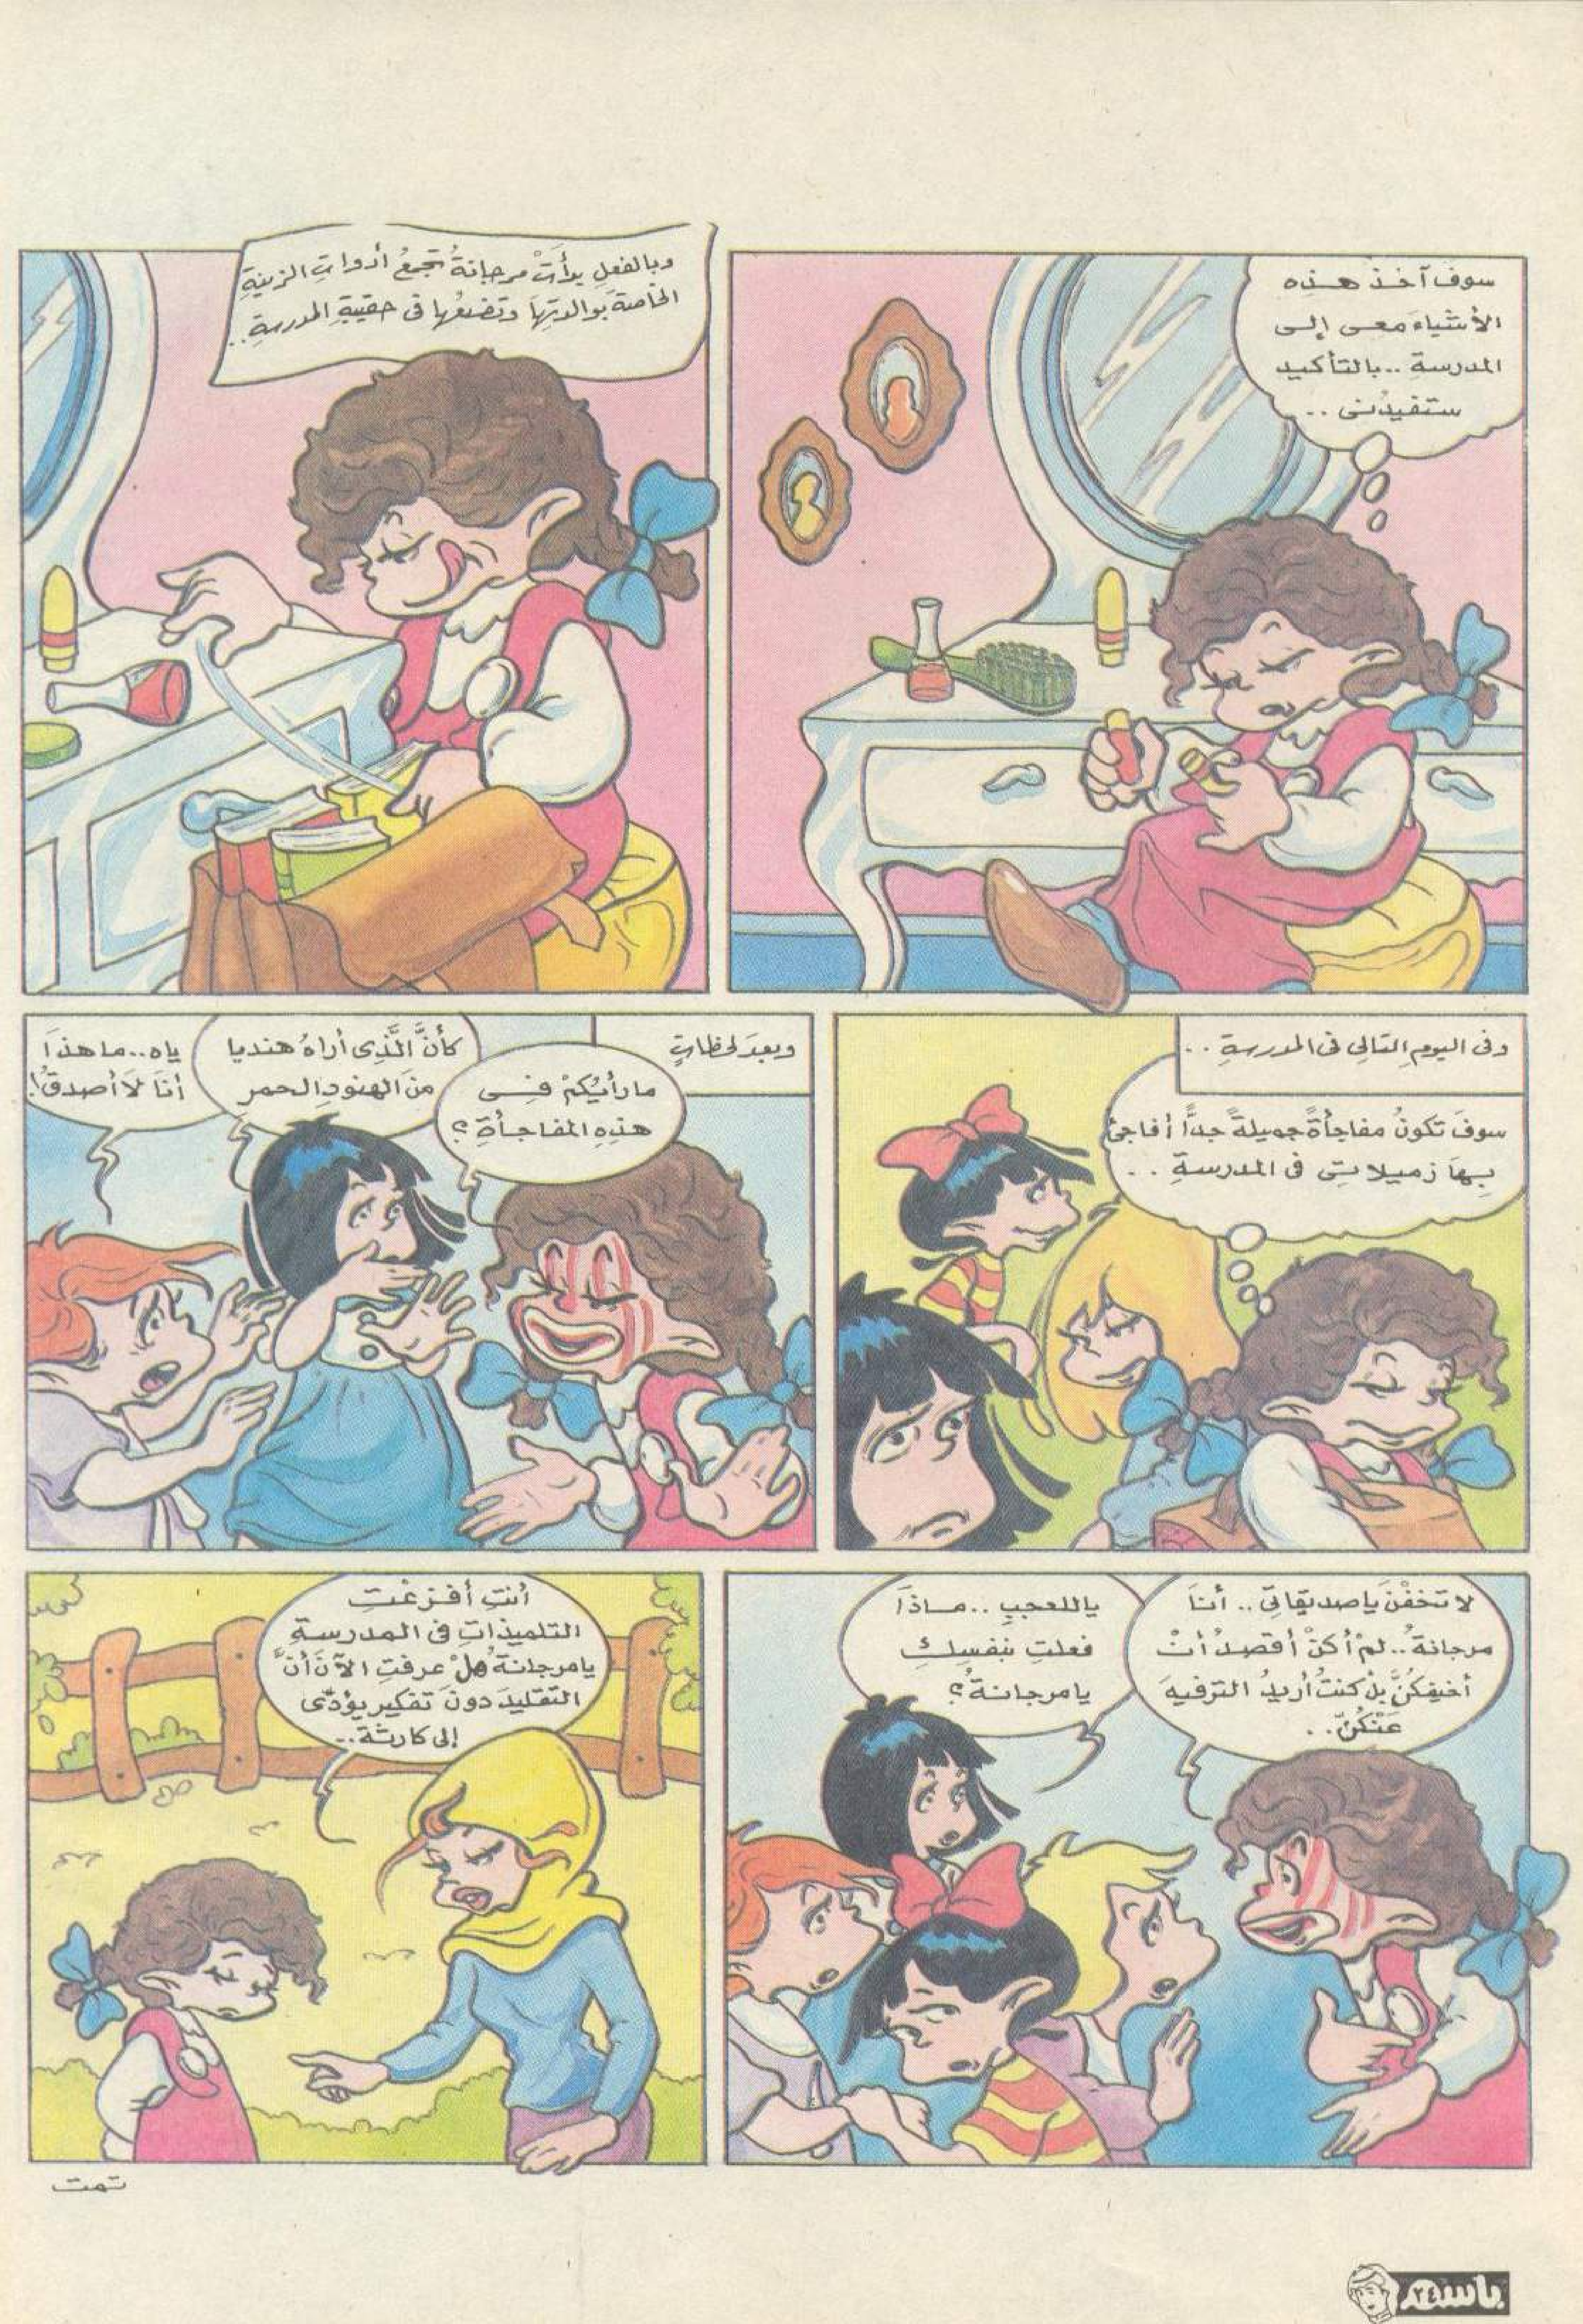 سوف آخذ هذه
الأشياءَ معى إلى
المدرسةِ .. بالتأكيد
ستفيدُنى ..
وبالفعلِ بدأَتْ مرجانةُ تجمعُ أدواتِ الزينةِ
الخاصةَ بوالدتِهَا وتضعُها فى حقيبةِ المدرسةِ ..
وفى اليومِ التالِى فى المدرسةِ ..
سوفَ تكونُ مفاجأةً جميلةً جدًّا أفاجئُ
بِهَا زميلاتِى فى المدرسةِ ..
وبعدَ لحظاتٍ
ما رأيُكُمْ فِى
هذِهِ المفاجأةِ ؟
كأنَّ الَّذِى أراهُ هنديا
منَ الهنودِ الحمر
ياه .. ما هذَا
أنَا لَا أصدقُ !
لا تخفْنَ يا صديقاتِى .. أنَا
مرجانةُ .. لمْ أكنْ أقصدُ أنْ
أخيفكُنَّ بلْ كنتُ أريدُ الترفيهَ
عَنْكُنَّ ..
ياللعجبِ .. مـاذَا
فعلتِ بنفسِكِ
يا مرجانةُ ؟
أنتِ أفزعْتِ
التلميذاتِ فى المدرسةِ
يا مرجانةُ هلْ عرفتِ الآنَ أنَّ
التقليدَ دونَ تفكيرٍ يؤدِّى
إلى كارثة ..
تمت
باسم
٢٤